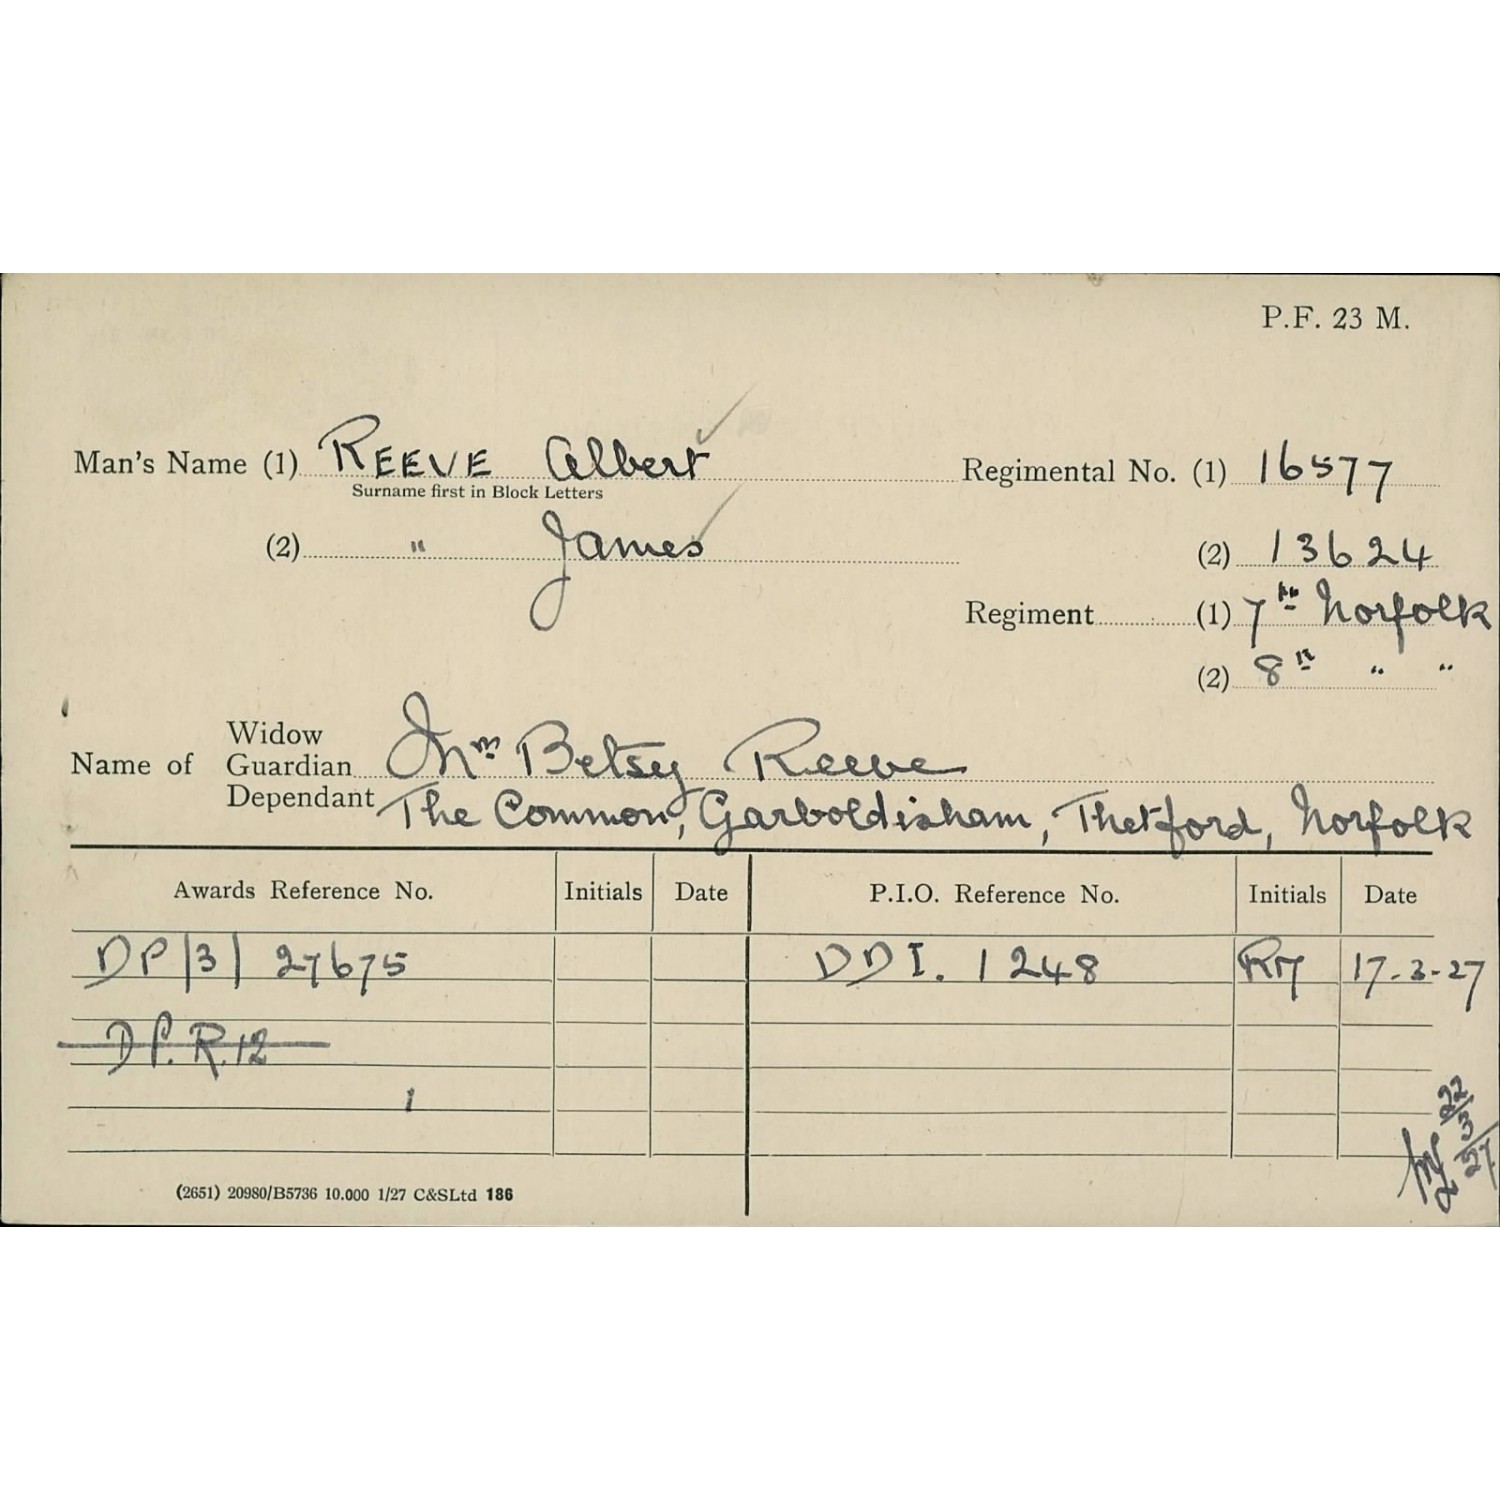 P.F. 23 M.
Man's Name (1) REEVE Albert Regimental No. (1) 16577
Surname first in Block Letters
(2) " James (2) 13624
Regiment (1) 7th Norfolk
(2) 8th " "
Widow
Name of Guardian Mrs Betsy Reeve
Dependant The Common, Garboldisham, Thetford, Norfolk
Awards Reference No. Initials Date P.I.O. Reference No. Initials Date
DP/3/ 27675 DDI. 1248 17-3-27
DP. R.12
22/3/27
(2651) 20980/B5736 10.000 1/27 C&SLtd 186